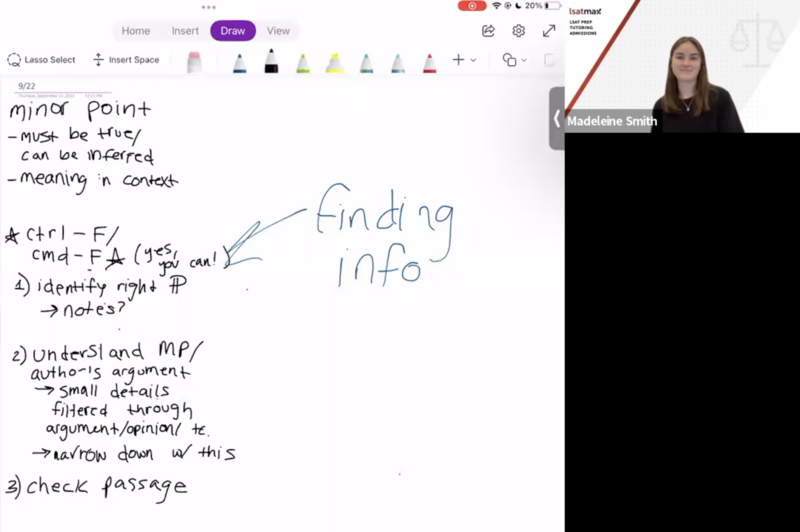 20%
Home Insert Draw View
Lasso Select Insert Space
9/22
minor point
- must be true/
can be inferred
- meaning in context
ctrl - F/
cmd - F (yes,
you can!)
finding
info
1) identify right ¶
→ notes?
2) understand MP/
author's argument
→ small details
filtered through
argument/opinion/
→ narrow down w/ this
3) check passage
lsatmax
LSAT PREP
TUTORING
ADMISSIONS
Madeleine Smith